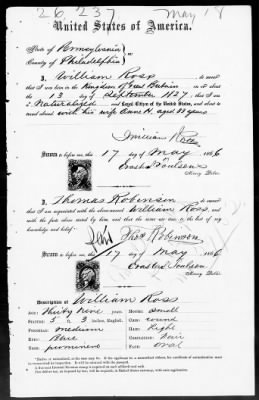 26,237 May 18
United States of America.
State of Pennsylvania
County of Philadelphia
I, William Ross do swear
that I was born in the Kingdom of Great Britain on or about
the 13 day of September 1827; that I am
a Naturalized and Loyal Citizen of the United States, and about to
travel abroad with his wife Anne H. aged 33 years
William Ross
Sworn before me, this 17 day of May 1866
Notary Public.
I, Thomas Robinson do swear
that I am acquainted with the above-named William Ross, and
with the facts above stated by him, and that the same are true, to the best of my
knowledge and belief.
Thos Robinson
Sworn before me, this 17 day of May 1866
Notary Public.
Description of William Ross
Age: Thirty nine years.
Mouth: small
Stature: 5 3 inches, English.
Chin: round
Forehead: medium
Hair: light
Eyes: Blue
Complexion: Fair
Nose: prominent
Face: oval